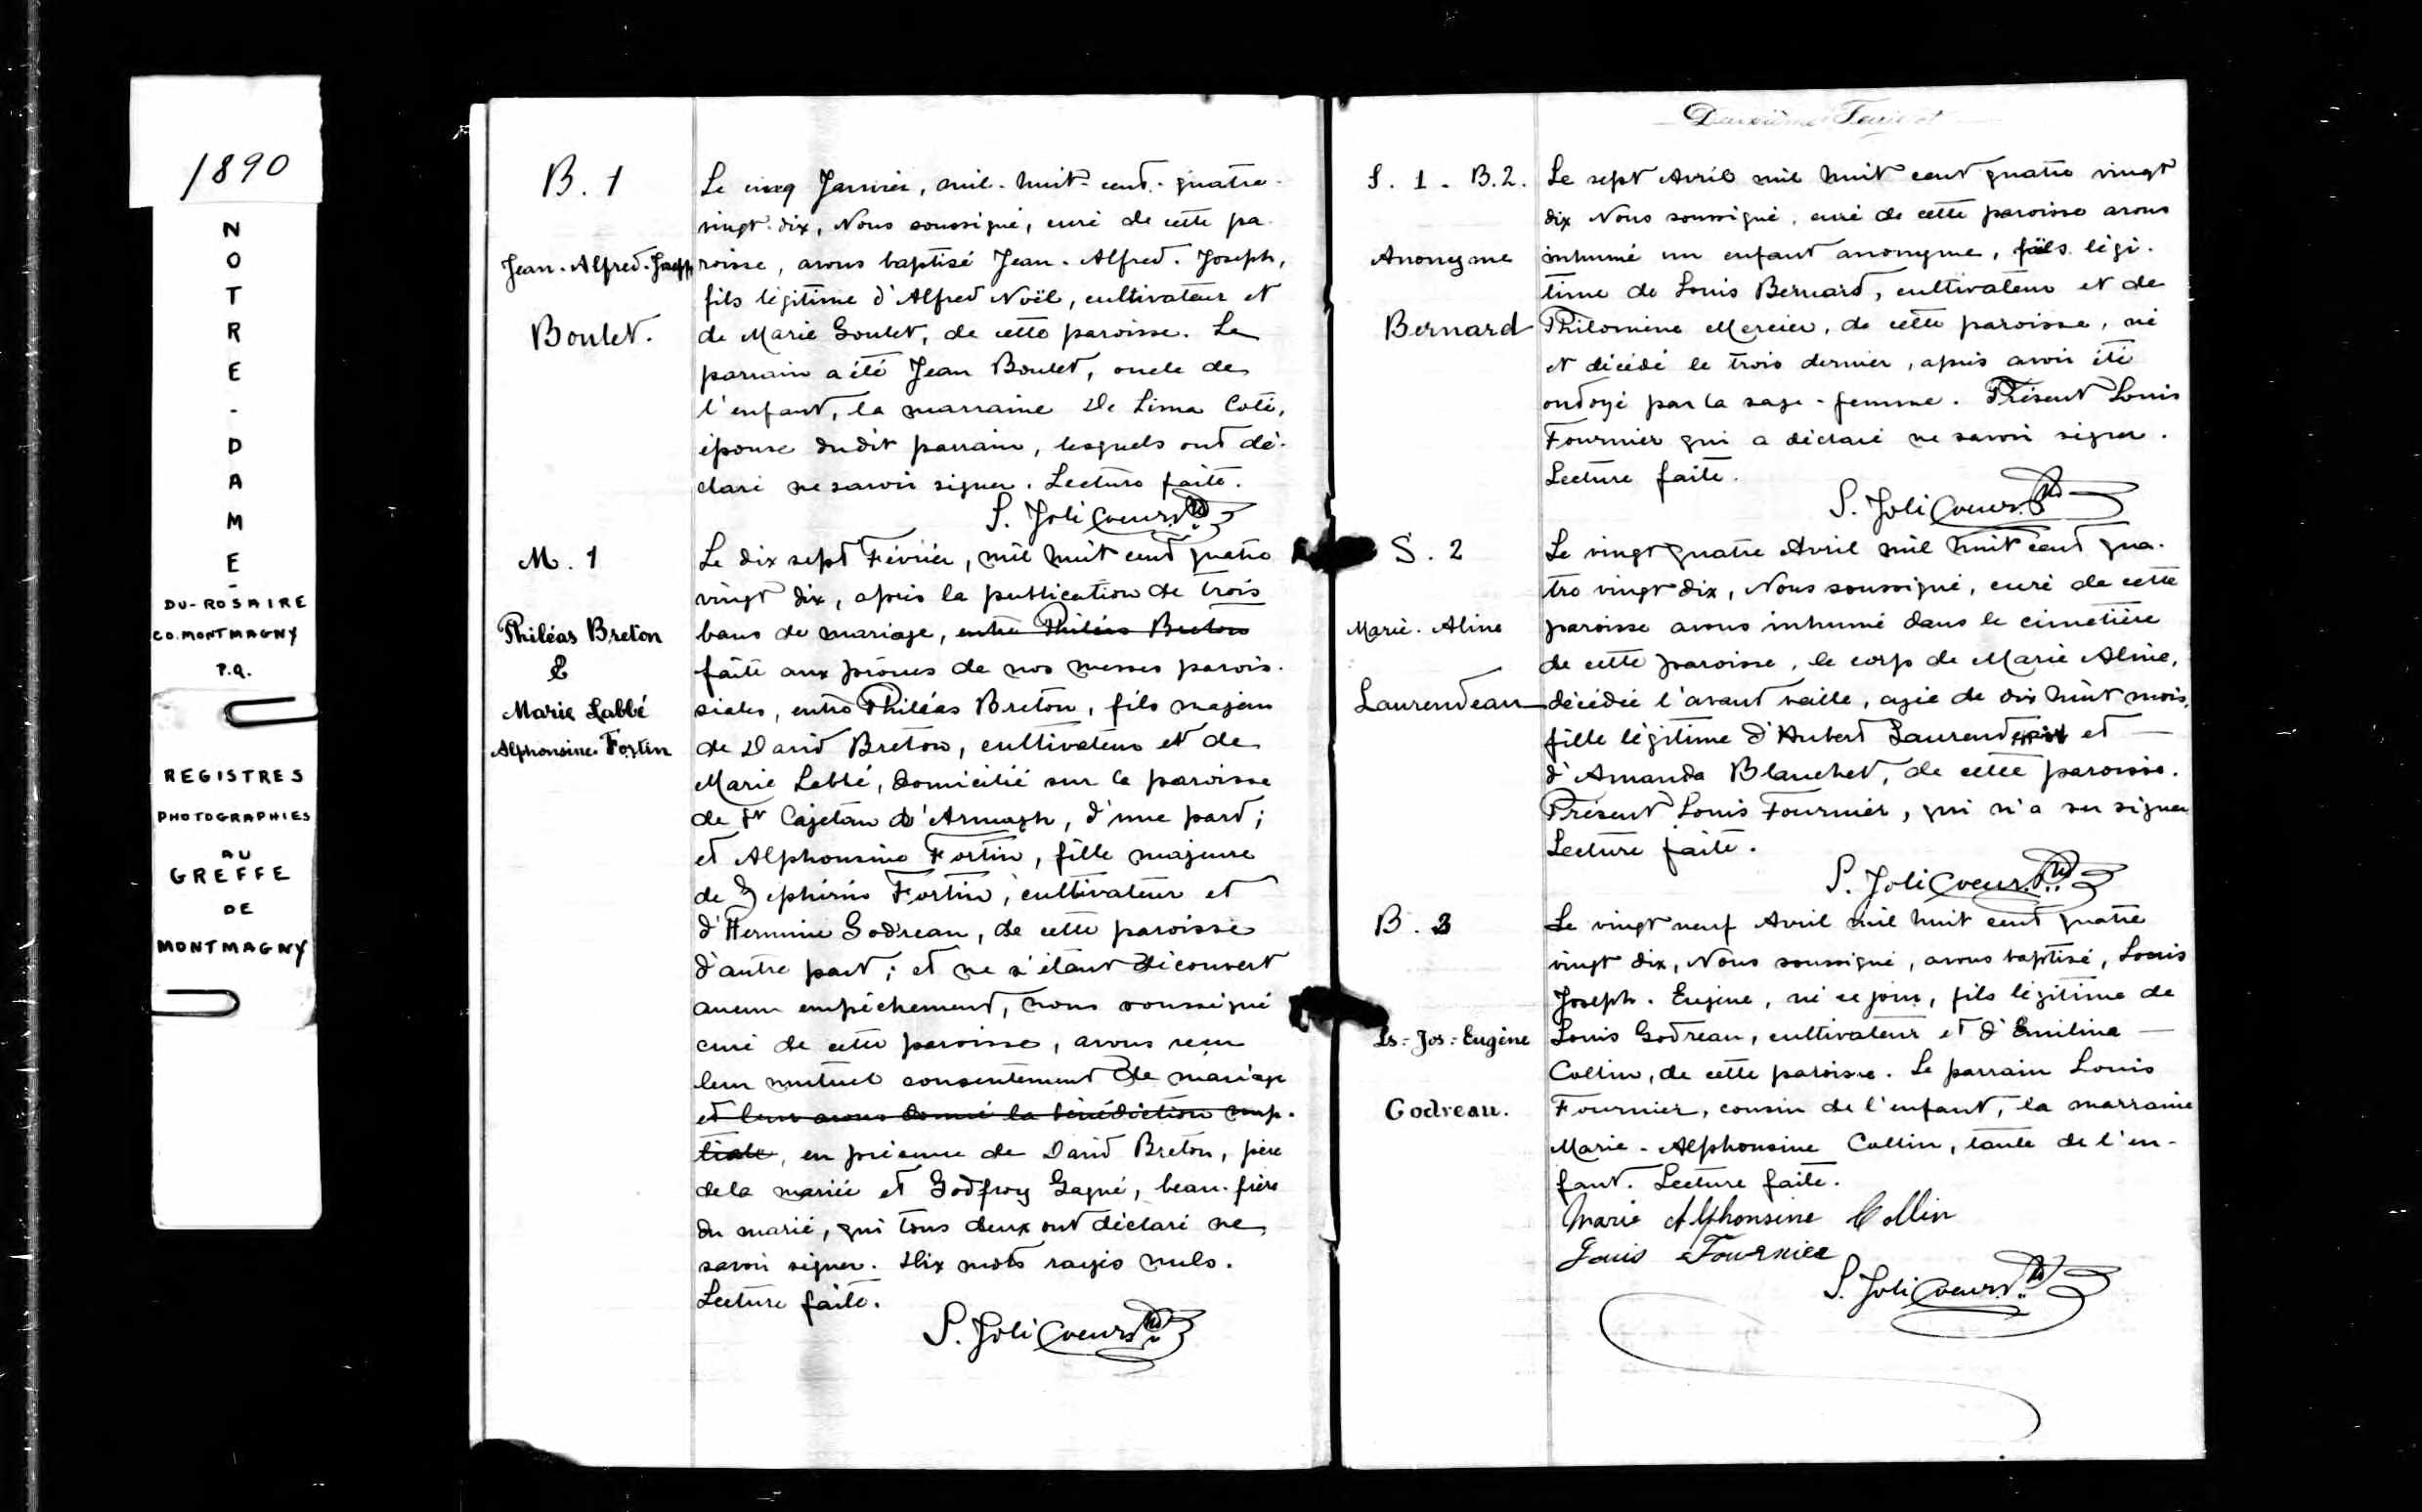 1890
NOTRE-DAME-
DU-ROSAIRE
CO. MONTMAGNY
P.Q.
REGISTRES
PHOTOGRAPHIES
AU
GREFFE
DE
MONTMAGNY
B. 1
Jean-Alfred-Joseph
Boulet.
Le cinq Janvier, mil-huit-cent-quatre-
vingt-dix, Nous soussigné, curé de cette pa-
roisse, avons baptisé Jean-Alfred-Joseph,
fils légitime d'Alfred Noël, cultivateur et
de Marie Goulet, de cette paroisse. Le
parrain a été Jean Boulet, oncle de
l'enfant, la marraine De Lima Coté,
épouse dudit parrain, lesquels ont dé-
claré ne savoir signer. Lecture faite.
S. Jolicoeur Ptre
M. 1
Philéas Breton
&
Marie Labbé
Alphonsine Fortin
Le dix sept Février, mil huit cent quatre
vingt dix, après la publication de trois
bans de mariage, entre Philéas Breton
faite aux prônes de nos messes parois-
siales, entre Philéas Breton, fils majeur
de David Breton, cultivateur et de
Marie Labbé, domicilié sur la paroisse
de St Cajetan d'Armagh, d'une part;
et Alphonsine Fortin, fille majeure
de Zéphirin Fortin, cultivateur et
d'Hermine Godreau, de cette paroisse
d'autre part; et ne s'étant découvert
aucun empêchement, nous soussigné
curé de cette paroisse, avons reçu
leur mutuel consentement de mariage
et leur avons donné la bénédiction nup-
tiale, en présence de David Breton, père
de la mariée et Godfroy Gagné, beau-frère
du marié, qui tous deux ont déclaré ne
savoir signer. Dix mots rayés nuls.
Lecture faite.
S. Jolicoeur Ptre
Deuxième Feuillet
S. 1 - B. 2.
Anonyme
Bernard
Le sept Avril mil huit cent quatre vingt
dix Nous soussigné, curé de cette paroisse avons
inhumé un enfant anonyme, fils légi-
time de Louis Bernard, cultivateur et de
Philomine Mercier, de cette paroisse, né
et décédé le trois dernier, après avoir été
ondoyé par la sage-femme. Présent Louis
Fournier qui a déclaré ne savoir signer.
Lecture faite.
S. Jolicoeur Ptre
S. 2
Marie-Aline
Laurendeau
Le vingt quatre Avril mil huit cent qua-
tre vingt dix, Nous soussigné, curé de cette
paroisse avons inhumé dans le cimetière
de cette paroisse, le corps de Marie Aline,
décédée l'avant veille, agée de dix huit mois,
fille légitime d'Hubert Laurendeau et
d'Amanda Blanchet, de cette paroisse.
Présent Louis Fournier, qui n'a su signer
Lecture faite.
S. Jolicoeur Ptre
B. 3
Ls=Jos=Eugène
Godreau.
Le vingt neuf Avril mil huit cent quatre
vingt dix, Nous soussigné, avons baptisé, Louis
Joseph-Eugène, né ce jour, fils légitime de
Louis Godreau, cultivateur et d'Emilina
Collin, de cette paroisse. Le parrain Louis
Fournier, cousin de l'enfant, la marraine
Marie-Alphonsine Collin, tante de l'en-
fant. Lecture faite.
Marie Alphonsine Collin
Louis Fournier
S. Jolicoeur Ptre